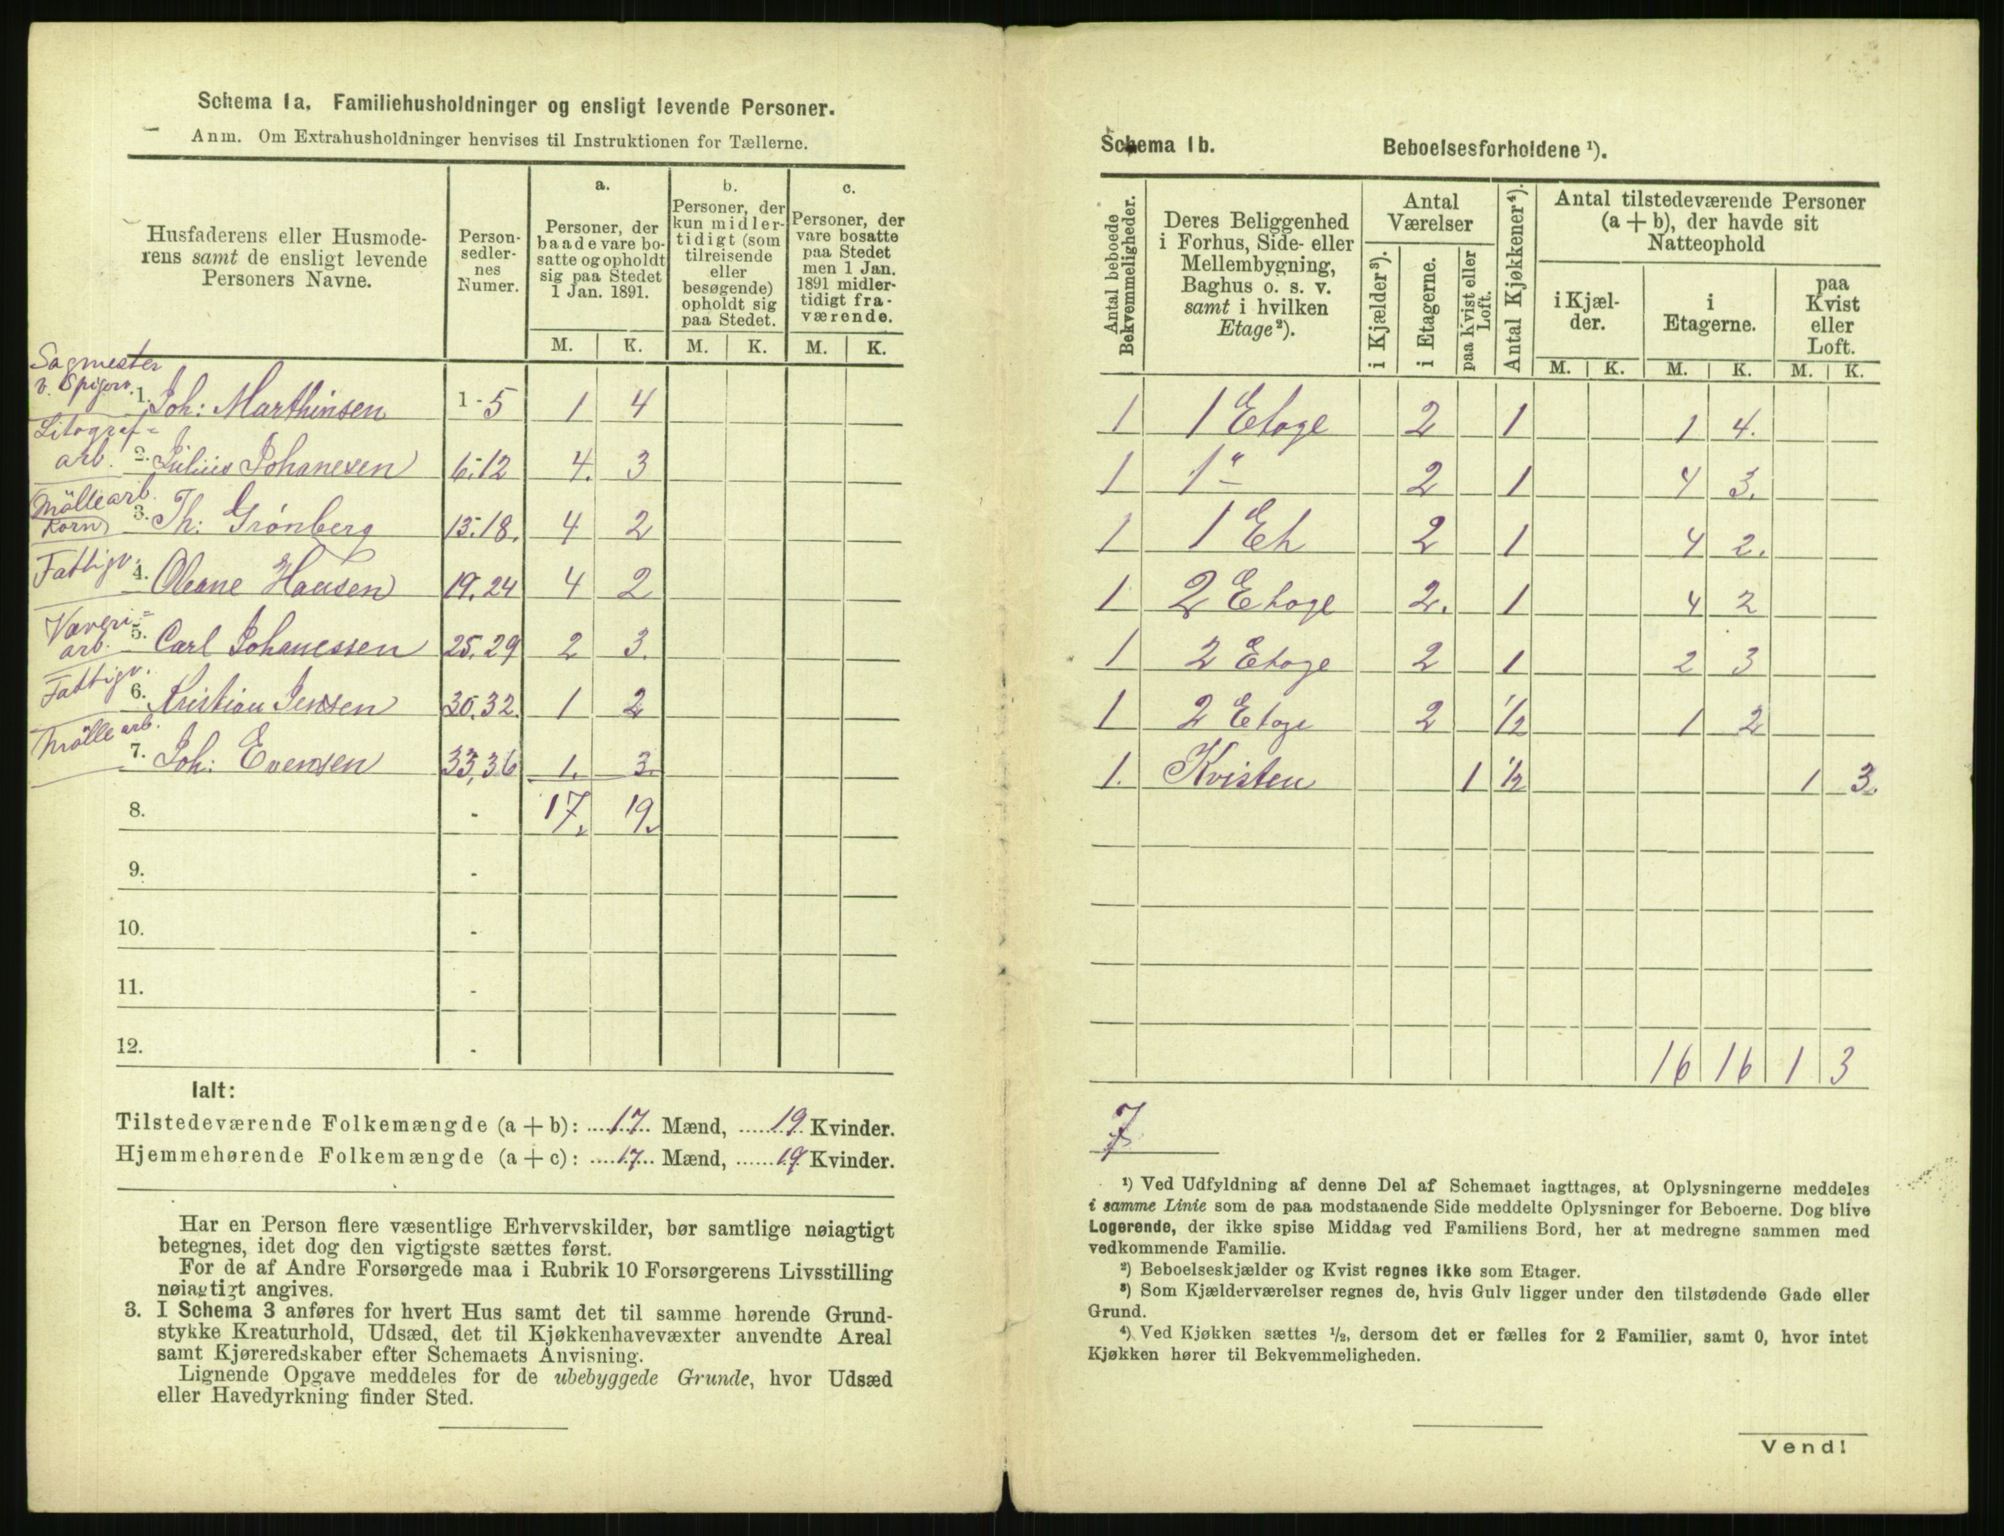 Schema 1a. Familiehusholdninger og ensligt levende Personer.
Anm. Om Extrahusholdninger henvises til Instruktionen for Tællerne.
Husfaderens eller Husmode-
rens samt de ensligt levende
Personers Navne.
Person-
sedler-
nes
Numer.
a.
Personer, der
baade vare bo-
satte og opholdt
sig paa Stedet
1 Jan. 1891.
b.
Personer, der
kun midler-
tidigt (som
tilreisende
eller
besøgende)
opholdt sig
paa Stedet.
c.
Personer, der
vare bosatte
paa Stedet
men 1 Jan.
1891 midler-
tidigt fra-
værende.
M. K. M. K. M. K.
Sagmester
v. Spigerv.
1. Joh: Marthinsen 1-5 1 4
Litograf-
arb.
2. Julius Johanesen 6-12 4. 3
Mölle arb.
Korn
3. Th: Grönberg 13-18. 4 2
Fattigv.
4. Oleane Hansen 19,24 4 2
Væveri=
arb.
5. Carl Johanessen 25,29 2 3.
Fattigv.
6. Kristian Jensen 30,32. 1 2
Mölle arb.
7. Joh: Evensen 33,36 1. 3.
8. - 17. 19.
9. -
10. -
11. -
12. -
Ialt:
Tilstedeværende Folkemængde (a + b): 17 Mænd, 19 Kvinder.
Hjemmehørende Folkemængde (a + c): 17 Mænd, 19 Kvinder.
Har en Person flere væsentlige Erhvervskilder, bør samtlige nøiagtigt
betegnes, idet dog den vigtigste sættes først.
For de af Andre Forsørgede maa i Rubrik 10 Forsørgerens Livsstilling
nøiagtigt angives.
3. I Schema 3 anføres for hvert Hus samt det til samme hørende Grund-
stykke Kreaturhold, Udsæd, det til Kjøkkenhavevæxter anvendte Areal
samt Kjøreredskaber efter Schemaets Anvisning.
Lignende Opgave meddeles for de ubebyggede Grunde, hvor Udsæd
eller Havedyrkning finder Sted.
Schema 1b. Beboelsesforholdene ¹).
Antal beboede
Bekvemmeligheder.
Deres Beliggenhed
i Forhus, Side- eller
Mellembygning,
Baghus o. s. v.
samt i hvilken
Etage²).
Antal
Værelser
i Kjælder³).
i Etagerne.
paa Kvist eller
Loft.
Antal Kjøkkener⁴).
Antal tilstedeværende Personer
(a + b), der havde sit
Natteophold
i Kjæl-
der.
i
Etagerne.
paa
Kvist
eller
Loft.
M. K. M. K. M. K.
1 1 Etage 2 1 1 4.
1 1 " 2 1 4 3.
1 1 Et 2 1 4 2.
1 2 Etage 2. 1 4 2
1 2 Etage 2 1 2 3
1 2 Etage 2 1/2 1 2
1. Kvisten 1 1/2 1 3.
16 16 1 3
7
¹) Ved Udfyldning af denne Del af Schemaet iagttages, at Oplysningerne meddeles
i samme Linie som de paa modstaaende Side meddelte Oplysninger for Beboerne. Dog blive
Logerende, der ikke spise Middag ved Familiens Bord, her at medregne sammen med
vedkommende Familie.
²) Beboelseskjælder og Kvist regnes ikke som Etager.
³) Som Kjælderværelser regnes de, hvis Gulv ligger under den tilstødende Gade eller
Grund.
⁴) Ved Kjøkken sættes ½, dersom det er fælles for 2 Familier, samt 0, hvor intet
Kjøkken hører til Bekvemmeligheden.
Vend!